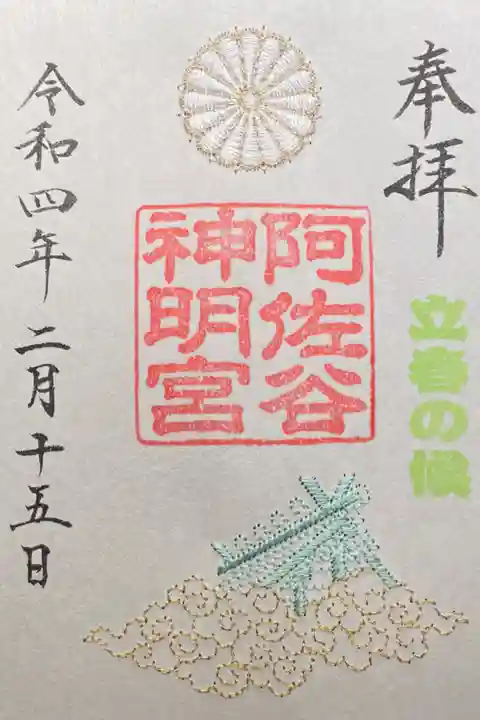 奉拝
立春の候
阿佐谷
神明宮
令和四年二月十五日